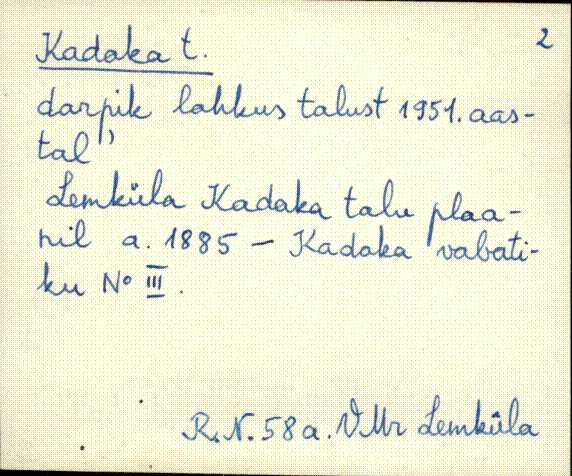 Kadaka t. 2
darpik lahkus talust 1951. aas-
tal"
Lemküla Kadaka talu plaa-
nil a. 1885 – Kadaka vabati-
ku No III.
R.N. 58a. VMr Lemküla